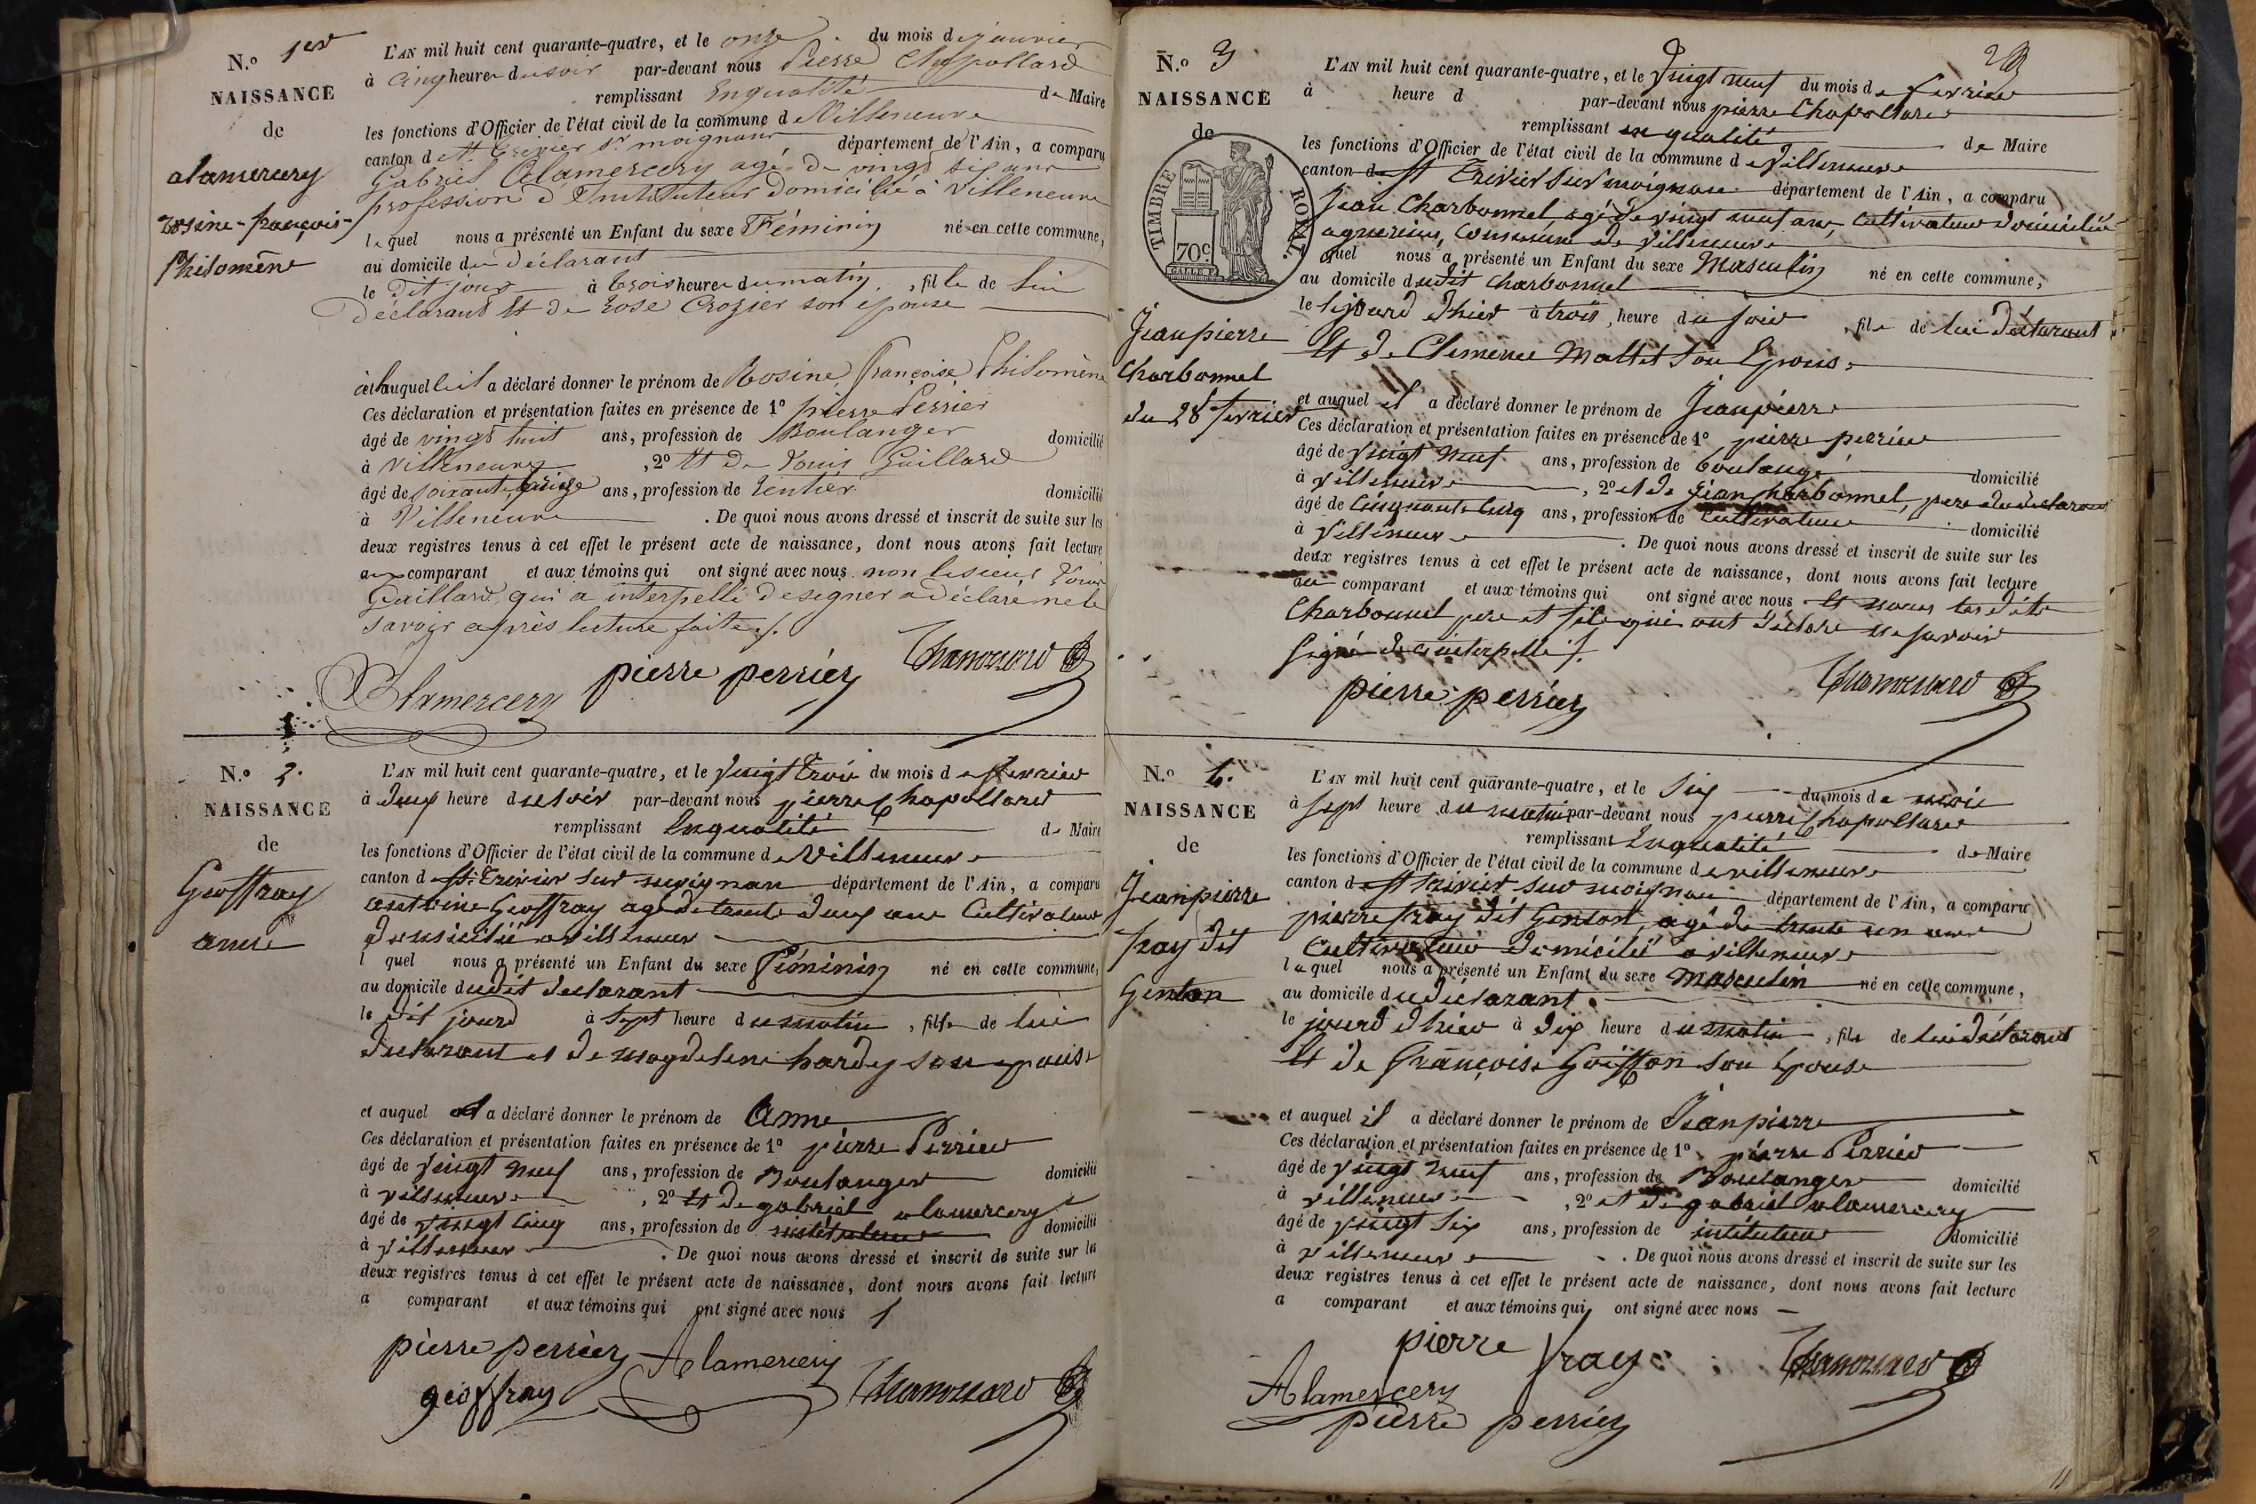 N.º 1er
NAISSANCE
de
alamercery
rosine-françoise-
philomène
L'AN mil huit cent quarante-quatre, et le onze du mois de janvier
à cinq heure du soir par-devant nous Pierre Chapollard
remplissant Enqualité de Maire
les fonctions d'Officier de l'état civil de la commune de Villeneuve
canton de St. Trivier sr. moignans département de l'Ain, a comparu
Gabriel Alamercery agé de vingt six ans
profession d'Instituteur domicilié à Villeneuve
lequel nous a présenté un Enfant du sexe Féminin né en cette commune,
au domicile du déclarant
le dit jour à trois heure du matin, fille de lui
déclarant et de Rose Crozier son épouse
et auquel il a déclaré donner le prénom de Rosine Françoise Philomène
Ces déclaration et présentation faites en présence de 1º pierre Perrier
âgé de vingt huit ans, profession de Boulanger domicilié
à Villeneuve, 2º et de Louis Guillard
âgé de soixante quinze ans, profession de Rentier domicilié
à Villeneuve. De quoi nous avons dressé et inscrit de suite sur les
deux registres tenus à cet effet le présent acte de naissance, dont nous avons fait lecture
au comparant et aux témoins qui ont signé avec nous non le sieur Louis
Guillard, qui a interpellé de signer a déclaré ne le
savoir après lecture faite ./.
Alamercery pierre perrier
N.º 2.
NAISSANCE
de
Geoffray
anne
L'AN mil huit cent quarante-quatre, et le vingt trois du mois de fevrier
à deux heure du soir par-devant nous pierre Chapollard
remplissant Enqualité de Maire
les fonctions d'Officier de l'état civil de la commune de Villeneuve
canton de St. Trivier sur moignan département de l'Ain, a comparu
antoine Geoffray agé de trente deux ans Cultivateur
domicilié a villeneuve
l quel nous a présenté un Enfant du sexe Féminin né en cette commune,
au domicile dudit declarant
le dit jourd à sept heure du matin, fille de lui
declarant et de magdeleine hardy son epouse
et auquel il a déclaré donner le prénom de Anne
Ces déclaration et présentation faites en présence de 1º pierre Perrier
âgé de vingt neuf ans, profession de Boulanger domicilié
à villeneuve, 2º et de gabriel alamercery
âgé de vingt cinq ans, profession de instituteur domicilié
à villeneuve. De quoi nous avons dressé et inscrit de suite sur les
deux registres tenus à cet effet le présent acte de naissance, dont nous avons fait lecture
a comparant et aux témoins qui ont signé avec nous
pierre perrier Alamercery
geoffray
N.º 3
NAISSANCE
de
TIMBRE ROYAL.
70c.
Jeanpierre
Charbonnel
du 28 fevrier
L'AN mil huit cent quarante-quatre, et le vingt neuf du mois de fevrier
à heure d par-devant nous pierre Chapollard
remplissant en qualité de Maire
les fonctions d'Officier de l'état civil de la commune de Villeneuve
canton de St Trivier sur moignan département de l'Ain, a comparu
Jean Charbonnel, agé de vingt neuf ans, cultivateur domicilié
a agnereins, commune de Villeneuve
quel nous a présenté un Enfant du sexe Masculin né en cette commune,
au domicile dudit Charbonnel
le jourd d'hier à trois, heure du soir, fils de lui déclarant
Et de Clemence Mattet son Epouse
et auquel il a déclaré donner le prénom de Jeanpierre
Ces déclaration et présentation faites en présence de 1º pierre perrier
âgé de vingt neuf ans, profession de boulangé domicilié
à villeneuve, 2º et de Jean Charbonnel, pere du declarant
âgé de Cinquante cinq ans, profession de Cultivateur domicilié
à Villeneuve. De quoi nous avons dressé et inscrit de suite sur les
deux registres tenus à cet effet le présent acte de naissance, dont nous avons fait lecture
au comparant et aux témoins qui ont signé avec nous
Charbonnel pere et fils qui ont déclaré ne savoir
signé de ce interpellé ./.
pierre perrier
N.º 4.
NAISSANCE
de
Jeanpierre
fray dit
Genton
L'AN mil huit cent quarante-quatre, et le Six du mois de
à sept heure du matin par-devant nous pierre Chapollard
remplissant Enqualité de Maire
les fonctions d'Officier de l'état civil de la commune de villeneuve
canton de St trivier sur moignan département de l'Ain, a comparu
pierre fray dit Genton, agé de trente un ans
Cultivateur domicilié a villeneuve
lequel nous a présenté un Enfant du sexe masculin né en cette commune,
au domicile du déclarant
le jourd d'hier à dix heure du matin, fils de lui déclarant
Et de Françoise Goiffon son Epouse
et auquel il a déclaré donner le prénom de Jeanpierre
Ces déclaration et présentation faites en présence de 1º pierre Perrier
âgé de vingt neuf ans, profession de Boulanger domicilié
à villeneuve, 2º et de gabriel alamercery
âgé de vingt six ans, profession de instituteur domicilié
à villeneuve. De quoi nous avons dressé et inscrit de suite sur les
deux registres tenus à cet effet le présent acte de naissance, dont nous avons fait lecture
a comparant et aux témoins qui ont signé avec nous
pierre fray
Alamercery
pierre perrier